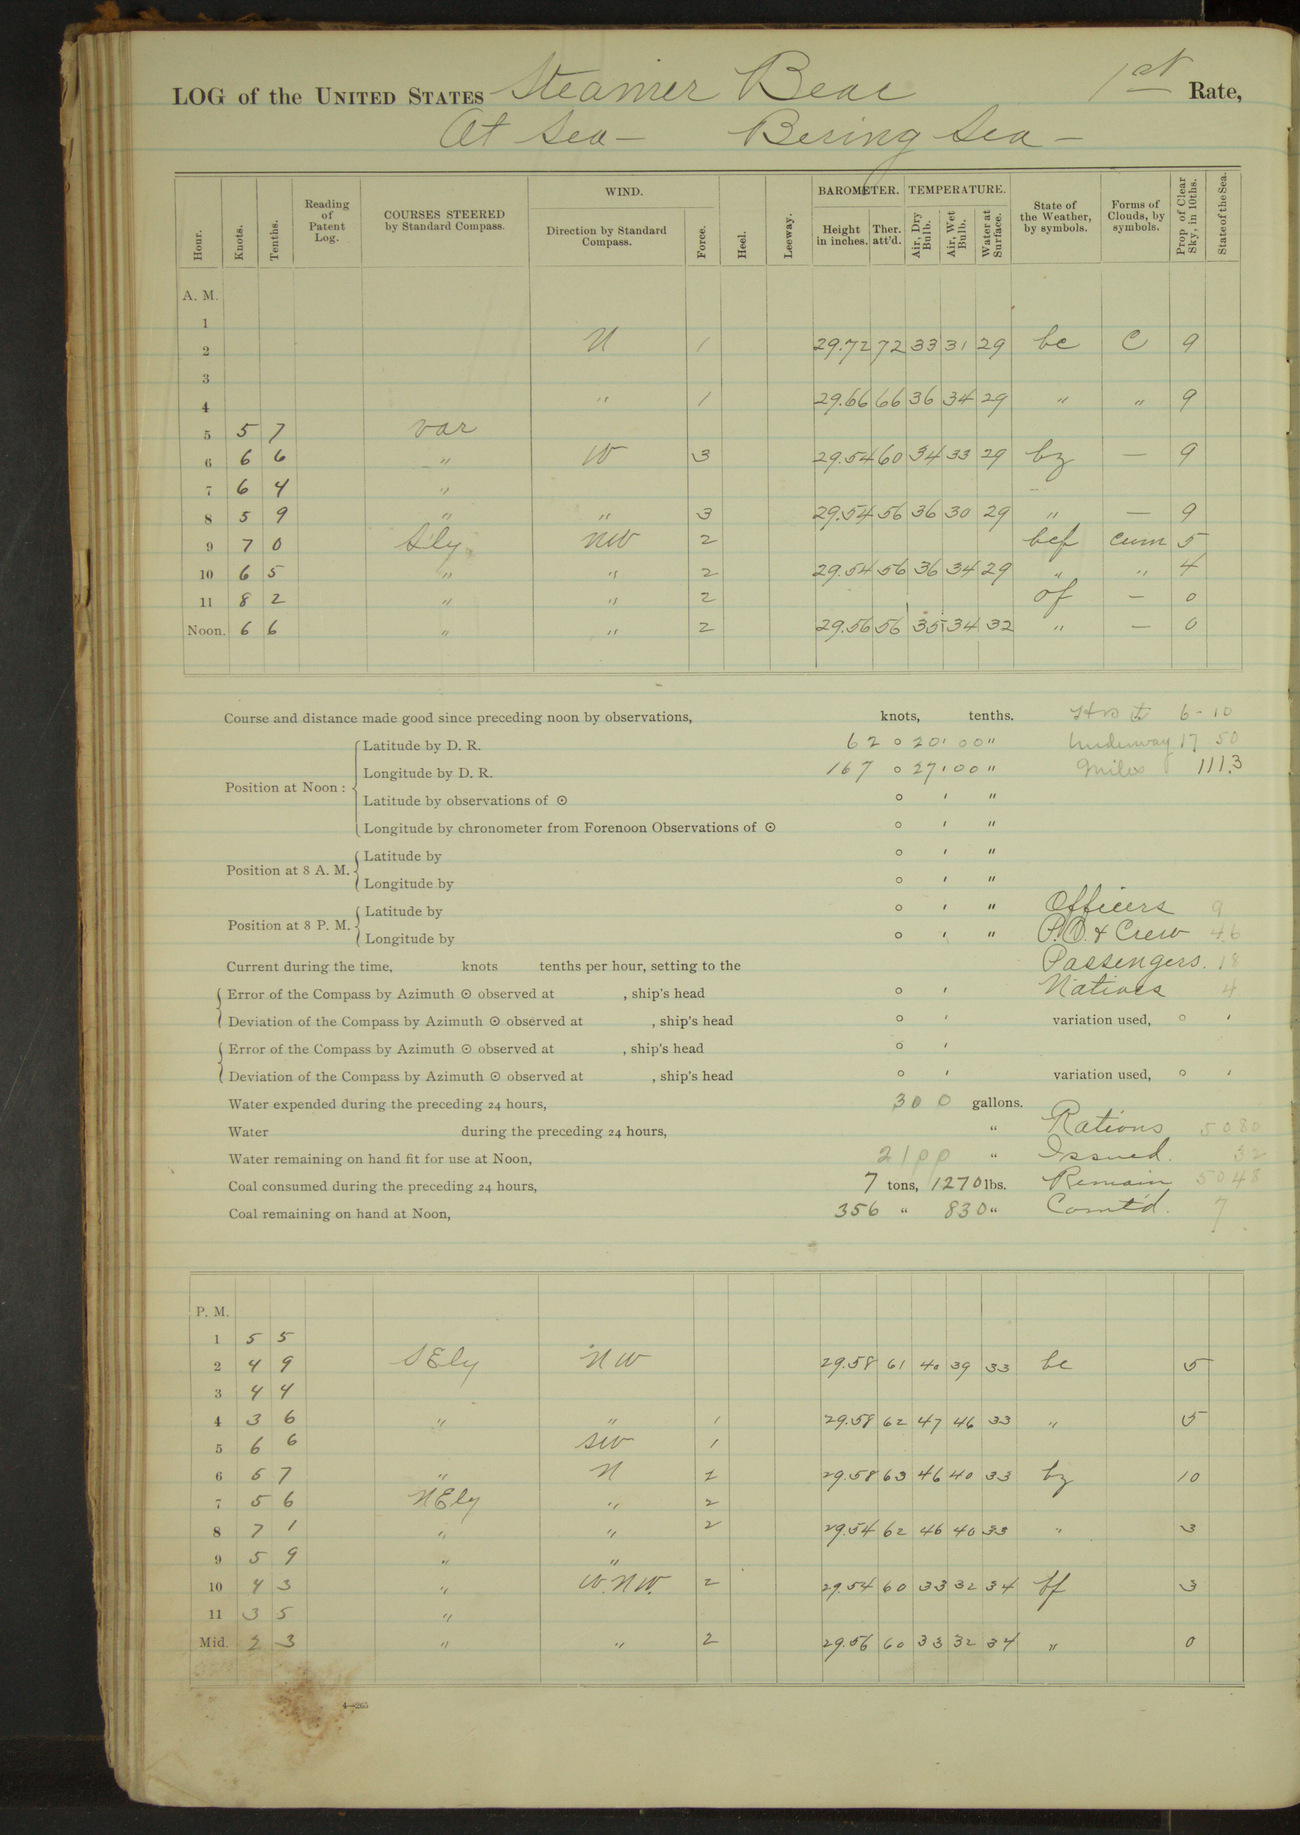 LOG of the UNITED STATES Steamer Bear 1st Rate,
At Sea — Bering Sea —
Hour. Knots. Tenths. Reading of Patent Log. COURSES STEERED by Standard Compass. WIND. Direction by Standard Compass. Force. Heel. Leeway. BAROMETER. Height in inches. Ther. att'd. TEMPERATURE. Air, Dry Bulb. Air, Wet Bulb. Water at Surface. State of the Weather, by symbols. Forms of Clouds, by symbols. Prop. of Clear Sky, in 10ths. State of the Sea.
A. M.
1
2 N 1 29.72 72 33 31 29 bc C 9
3
4 " 1 29.66 66 36 34 29 " " 9
5 5 7 var
6 6 6 " W 3 29.54 60 34 33 29 bz — 9
7 6 4 "
8 5 9 " " 3 29.54 56 36 30 29 " — 9
9 7 0 Sly NW 2 bcf cum 5
10 6 5 " " 2 29.54 56 36 34 29 " " 4
11 8 2 " " 2 of — 0
Noon. 6 6 " " 2 29.56 56 35 34 32 " — 0
Course and distance made good since preceding noon by observations, knots, tenths. 6-10
Position at Noon: Latitude by D. R. 62 ° 20 ' 00 " Underway 17 50
Longitude by D. R. 167 ° 27 ' 00 " Miles 111.3
Latitude by observations of ☉ ° ' "
Longitude by chronometer from Forenoon Observations of ☉ ° ' "
Position at 8 A. M. Latitude by ° ' "
Longitude by ° ' "
Position at 8 P. M. Latitude by ° ' " Officers 9
Longitude by ° ' " P.O. & Crew 46
Current during the time, knots tenths per hour, setting to the Passengers. 18
Error of the Compass by Azimuth ☉ observed at , ship's head ° ' Natives 4
Deviation of the Compass by Azimuth ☉ observed at , ship's head ° ' variation used, ° '
Error of the Compass by Azimuth ☉ observed at , ship's head ° '
Deviation of the Compass by Azimuth ☉ observed at , ship's head ° ' variation used, ° '
Water expended during the preceding 24 hours, 300 gallons.
Water during the preceding 24 hours, " Rations 5080
Water remaining on hand fit for use at Noon, 2100 " Issued. 32
Coal consumed during the preceding 24 hours, 7 tons, 1270 lbs. Remain 5048
Coal remaining on hand at Noon, 356 " 830 " Comt'd. 7
P. M.
1 5 5
2 4 9 SEly NW 29.58 61 40 39 33 bc 5
3 4 4
4 3 6 " " 1 29.58 62 47 46 33 " 5
5 6 6 SW 1
6 5 7 " N 2 29.58 63 46 40 33 bz 10
7 5 6 NEly " 2
8 7 1 " " 2 29.54 62 46 40 33 " 3
9 5 9 " "
10 4 3 " W.NW. 2 29.54 60 33 32 34 bf 3
11 3 5 "
Mid. 2 3 " " 2 29.56 60 33 32 34 " 0
4—265